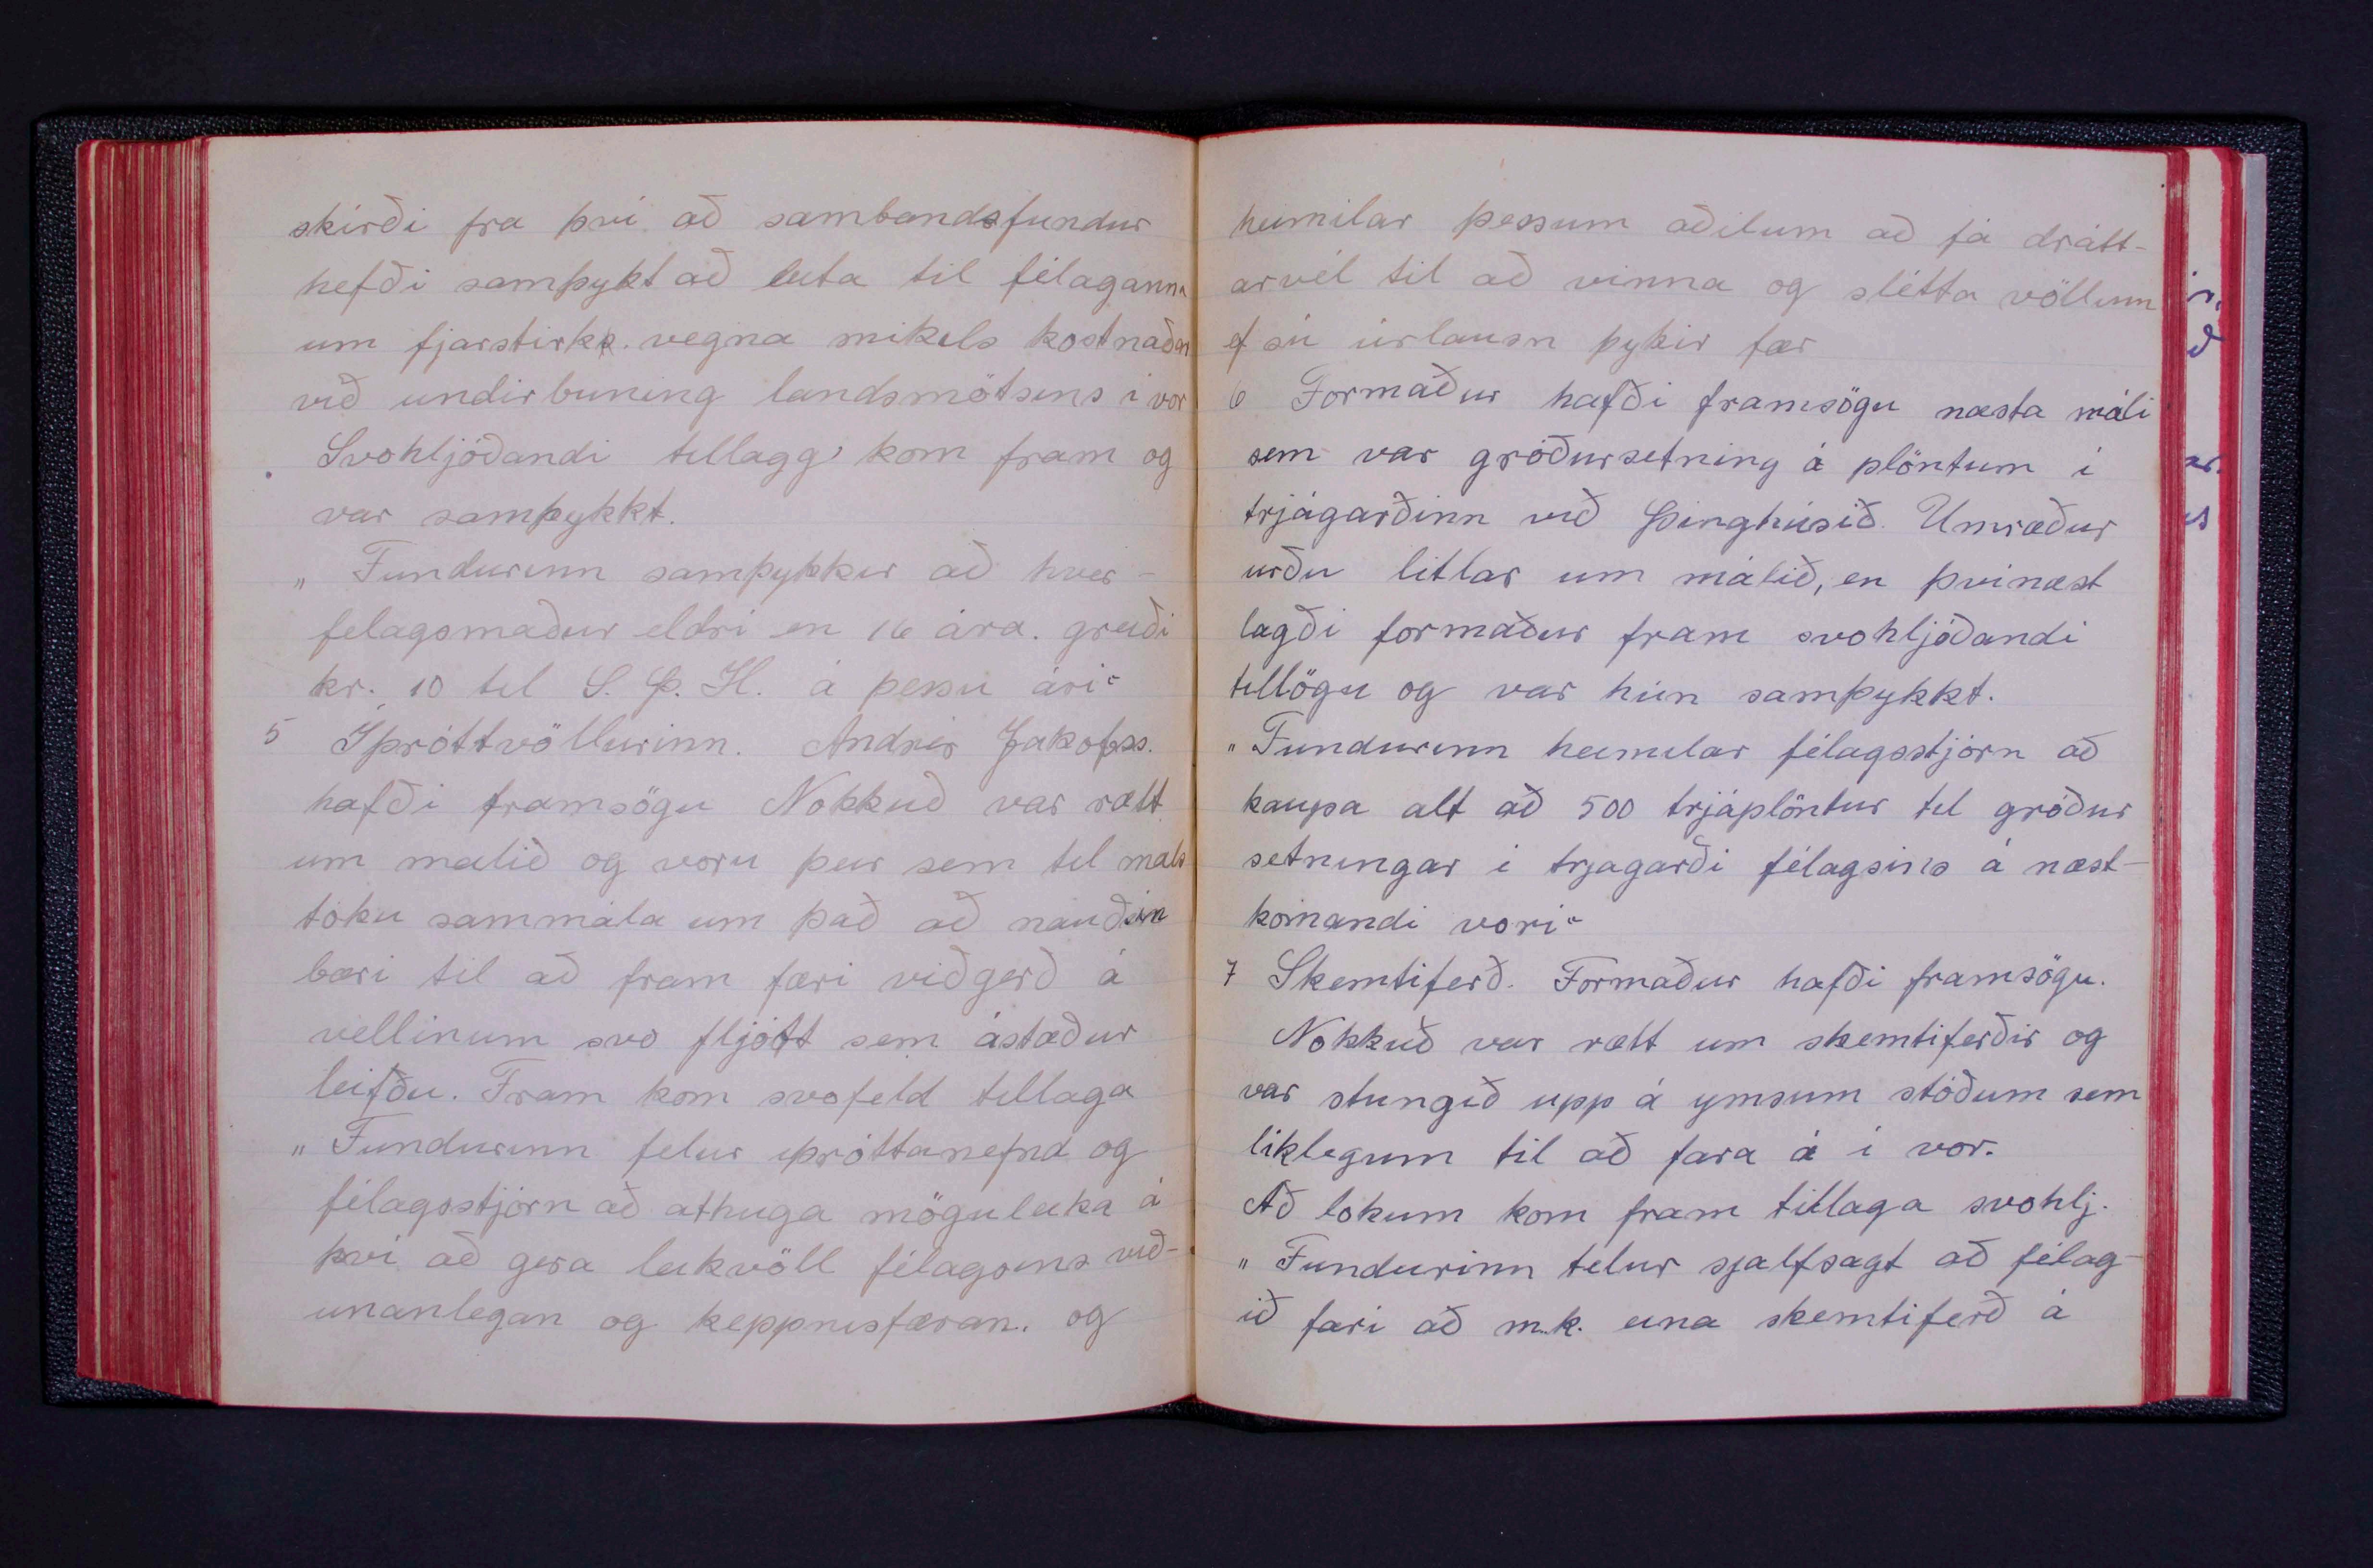 skírði fra því að sambandsfundur
hefði samþykt að leita til félaganna
um fjarstirk. vegna mikils kostnaðar
við undirbuning landsmótsins i vor
Svohljóðandi tillaga kom fram og
var samþykkt.
„ Fundurinn samþykkir að hver-
felagsmaður eldri en 16 ára. greiði
kr. 10 til S. Þ. H. á þessu ári"
5 Iþróttvöllurinn. Andrés Jakobss.
hafði framsögu Nokkuð var rætt
um malið og voru þeir sem til mals
tóku sammála um það að nauðsin
bæri til að fram færi viðgerð á
vellinum svo fljótt sem ástæður
leifðu. Fram kom svofeld tillaga
„ Fundurinn felur iþróttanefnd og
félagsstjórn að athuga möguleika á
því að gera leikvöll félagsins við-
unanlegan og keppnisfæran. og
heimilar þessum aðilum að fá drátt-
arvél til að vinna og slétta völlinn
ef sú úrlausn þykir fær
6 Formaður hafði framsögu næsta máli
sem var gróðursetning á plöntum i
trjágarðinn við Þinghúsið. Umræður
urðu litlar um málið, en þvínæst
lagði formaður fram svohljóðandi
tillögu og var hún samþykkt.
„ Fundurinn heimilar félagsstjórn að
kaupa alt að 500 trjáplöntur til gróður
setningar i trjagarði félagsins á næst-
komandi vori"
7 Skemtiferð. Formaður hafði framsögu.
Nokkuð var rætt um skemtiferðir og
var stungið upp á ymsum stöðum sem
liklegum til að fara á i vor.
Að lokum kom fram tillaga svohlj.
„ Fundurinn telur sjalfsagt að félag-
ið fari að m.k. eina skemtiferð á